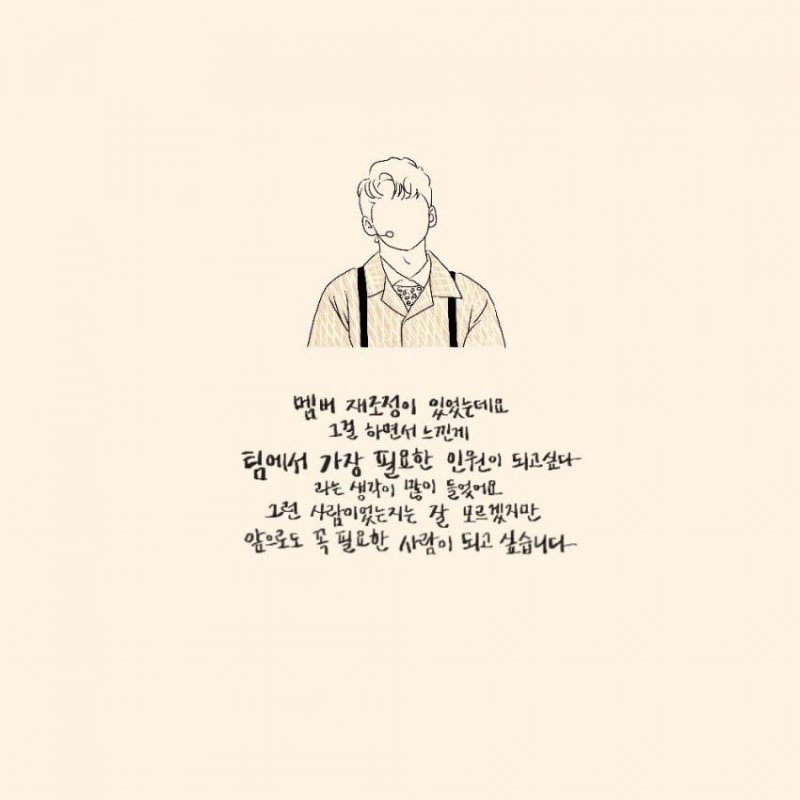 멤버 재조정이 있었는데요
그걸 하면서 느낀게
팀에서 가장 필요한 인원이 되고싶다
라는 생각이 많이 들었어요
그런 사람이었는지는 잘 모르겠지만
앞으로도 꼭 필요한 사람이 되고 싶습니다